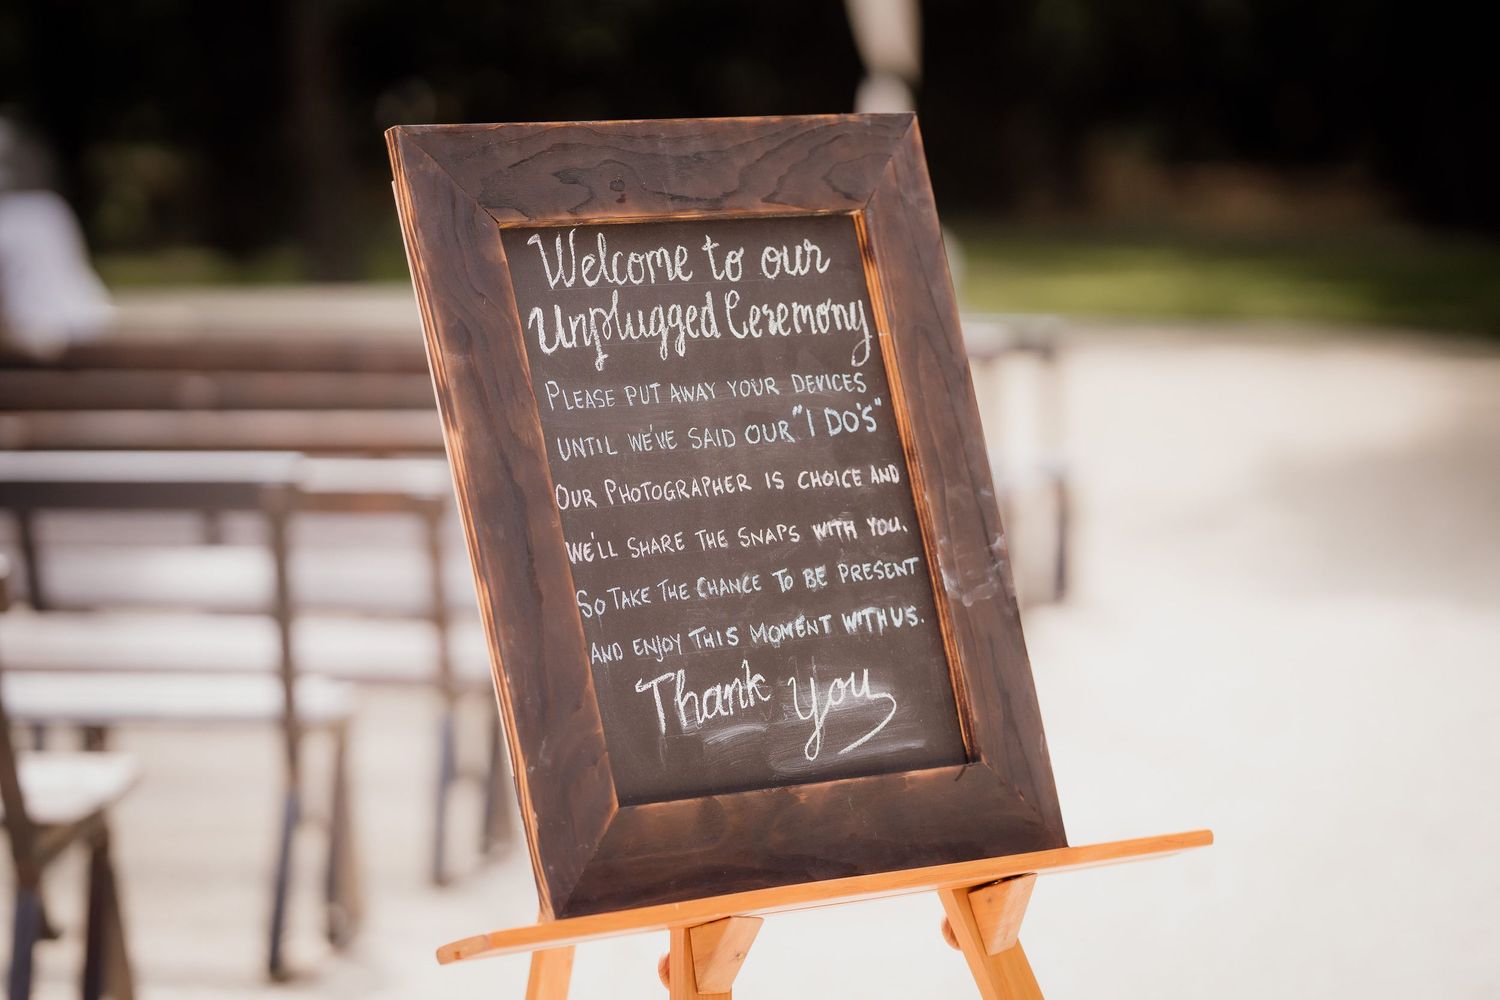 Welcome to our
Unplugged Ceremony
PLEASE PUT AWAY YOUR DEVICES
UNTIL WE'VE SAID OUR "I DO'S"
OUR PHOTOGRAPHER IS CHOICE AND
WE'LL SHARE THE SNAPS WITH YOU.
SO TAKE THE CHANCE TO BE PRESENT
AND ENJOY THIS MOMENT WITH US.
Thank You